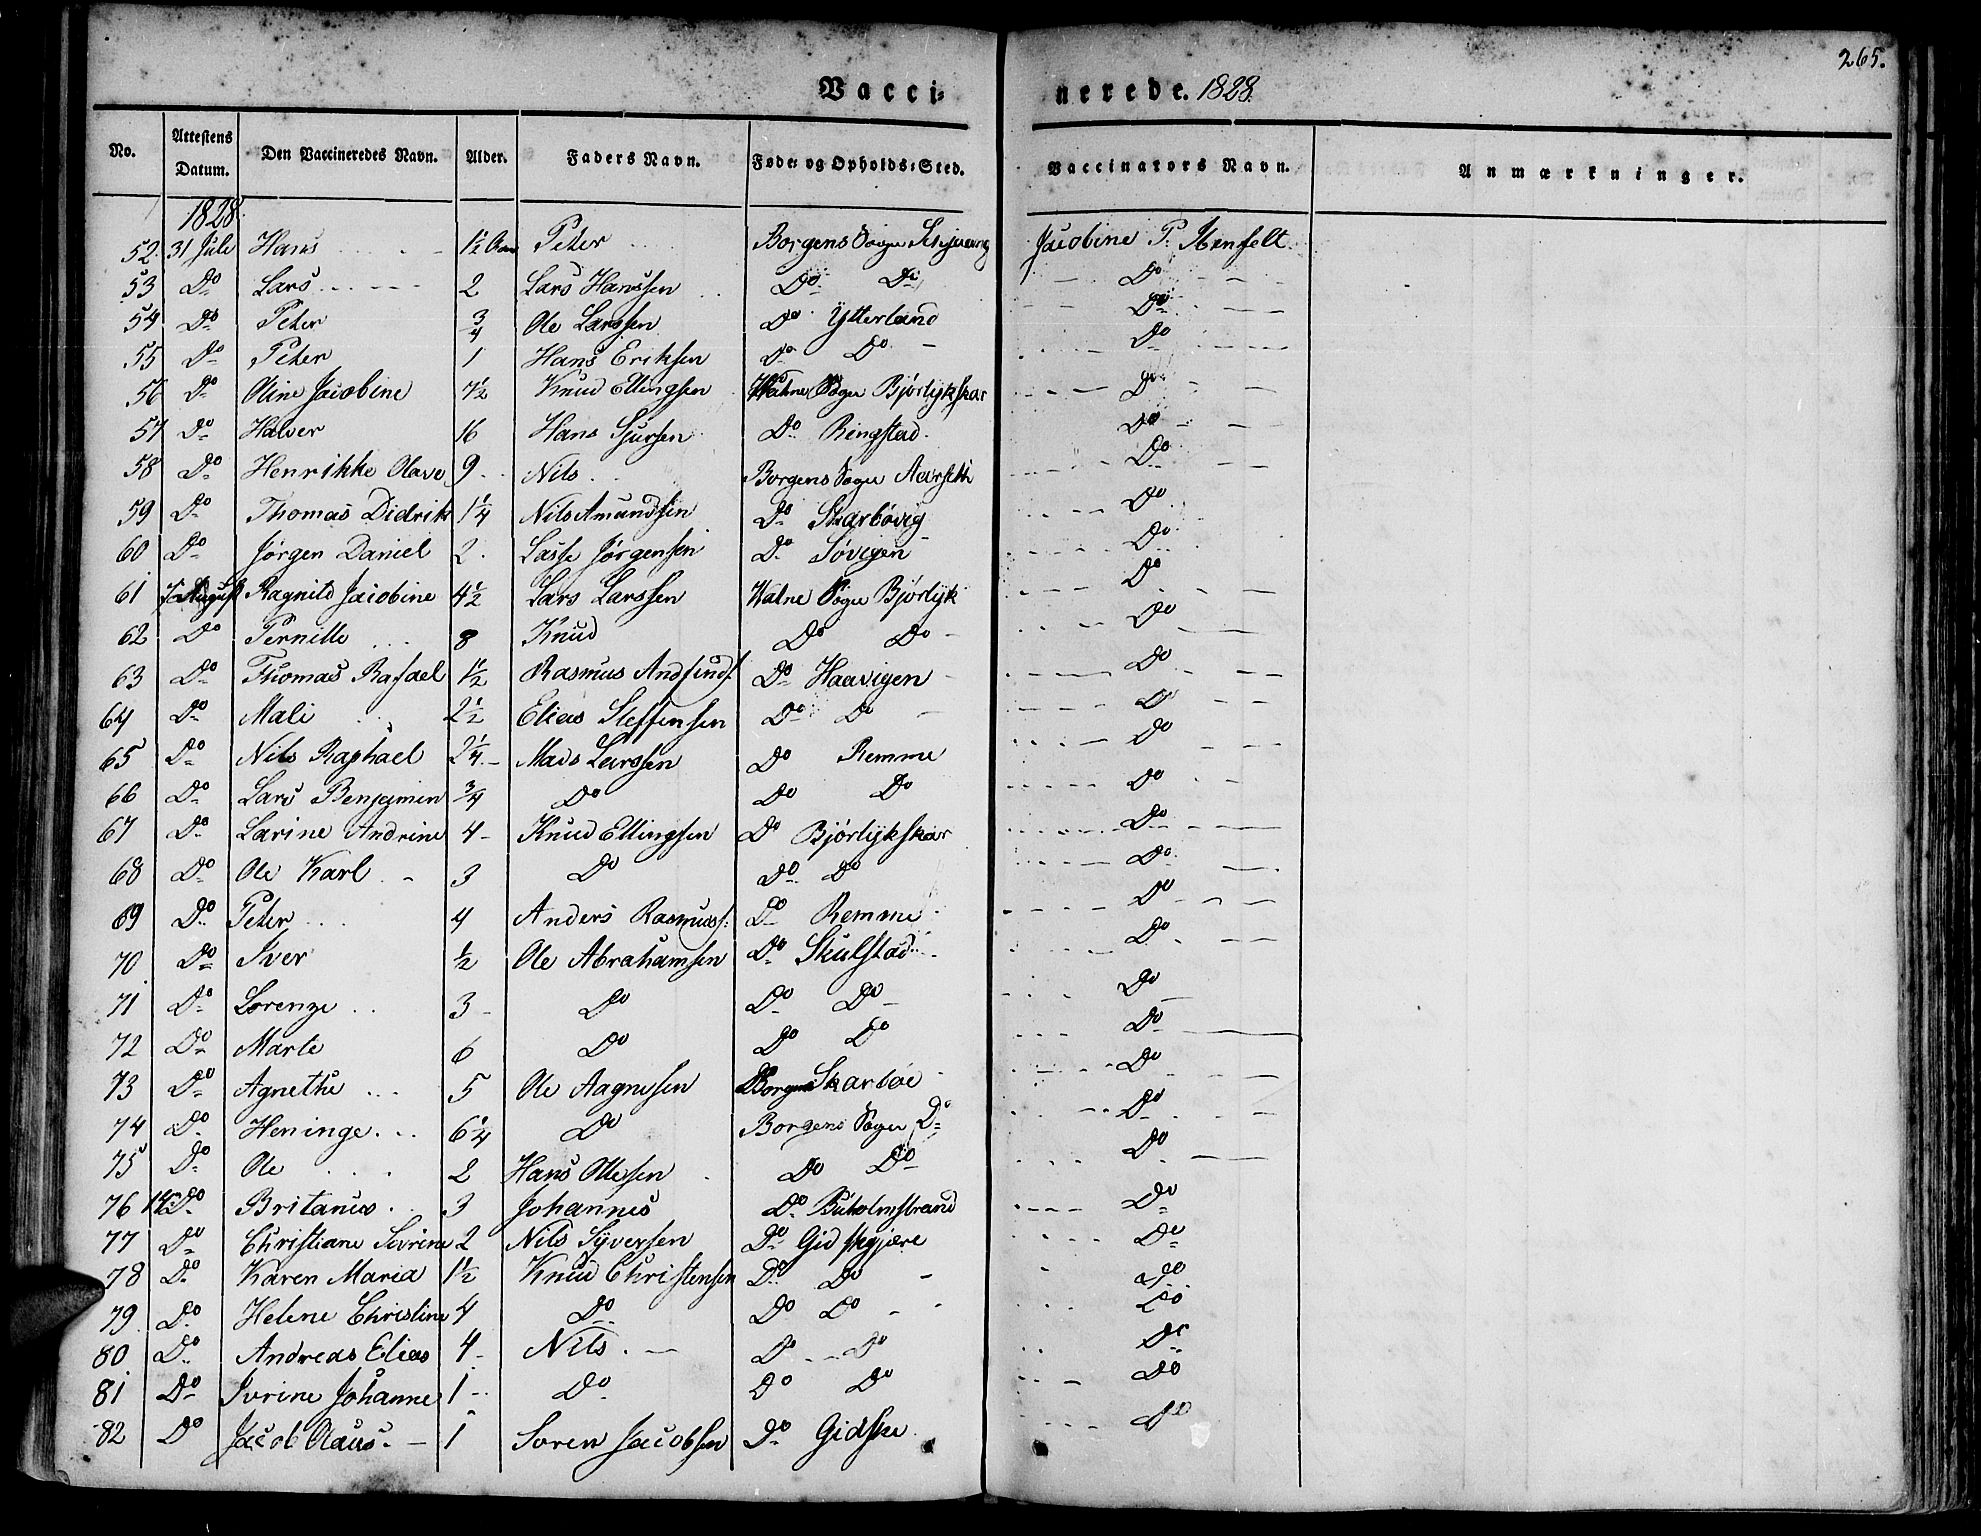 265.
Vacci- nerede. 1828.
No. Attestens Datum. Den Vaccineredes Navn. Alder. Faders Navn. Føde- og Opholds-Sted. Vaccinators Navn. Anmærkninger.
1828.
52 31 Jule Hans 1½ Peter Borgens Sogn Jacobine P.
53 Do Lars 2 Lars Hanssen Do Do Do
54 Do Peter ¾ Ole Larssen Do Ytterland Do
55 Do Peter 1 Hans Eriksen Do Do Do
56 Do Oline Jacobine 7½ Knud Ellingsen Sogn Bjørlykskar Do
57 Do Halver 16 Hans Sjursen Do Ringstad Do
58 Do Henrikke Olave 9 Nils Borgens Sogn Aarseth Do
59 Do Thomas Didrik 1¼ Nils Amundsen Do Skarbøvig Do
60 Do Jørgen Daniel 2 Lasse Jørgensen Do Søvigen Do
61 7 August Ragnild Jacobine 4½ Lars Larssen Vatne Sogn Bjørlyk Do
62 Do Pernille 8 Knud Do Do Do
63 Do Thomas Rafael 1½ Rasmus Do Haavigen Do
64 Do Mali 2½ Elias Steffensen Do Do Do
65 Do Nils Raphael 2¼ Mads Larssen Do Remme Do
66 Do Lars Benjamin ¾ Do Do Do Do
67 Do Larine Andrine 4 Knud Ellingsen Do Bjørlykskar Do
68 Do Ole Karl 3 Do Do Do Do
69 Do Peter 4 Anders Rasmuss: Do Remme Do
70 Do Iver ½ Ole Abrahamsen Do Skulstad Do
71 Do Lorenze 3 Do Do Do Do
72 Do Marte 6 Do Do Do Do
73 Do Agnethe 5 Ole Aagnesen Borgens Skarbøe Do
74 Do Heninge 6¼ Do Borgens Sogn Do Do
75 Do Ole 2 Hans Olessen Do Do Do
76 14 Do Britanus 3 Johannes Do Buholmstrand Do
77 Do Christiane Sivrine 2 Nils Syversen Do Gidskgjære Do
78 Do Karen Maria 1½ Knud Christensen Do Do Do
79 Do Helene Christine 4 Do Do Do Do
80 Do Andreas Elias 4 Nils Do Do Do
81 Do Ivrine Johanne 1 Do Do Do Do
82 Do Jacob Olaus 1 Soren Jacobsen Do Gidske Do